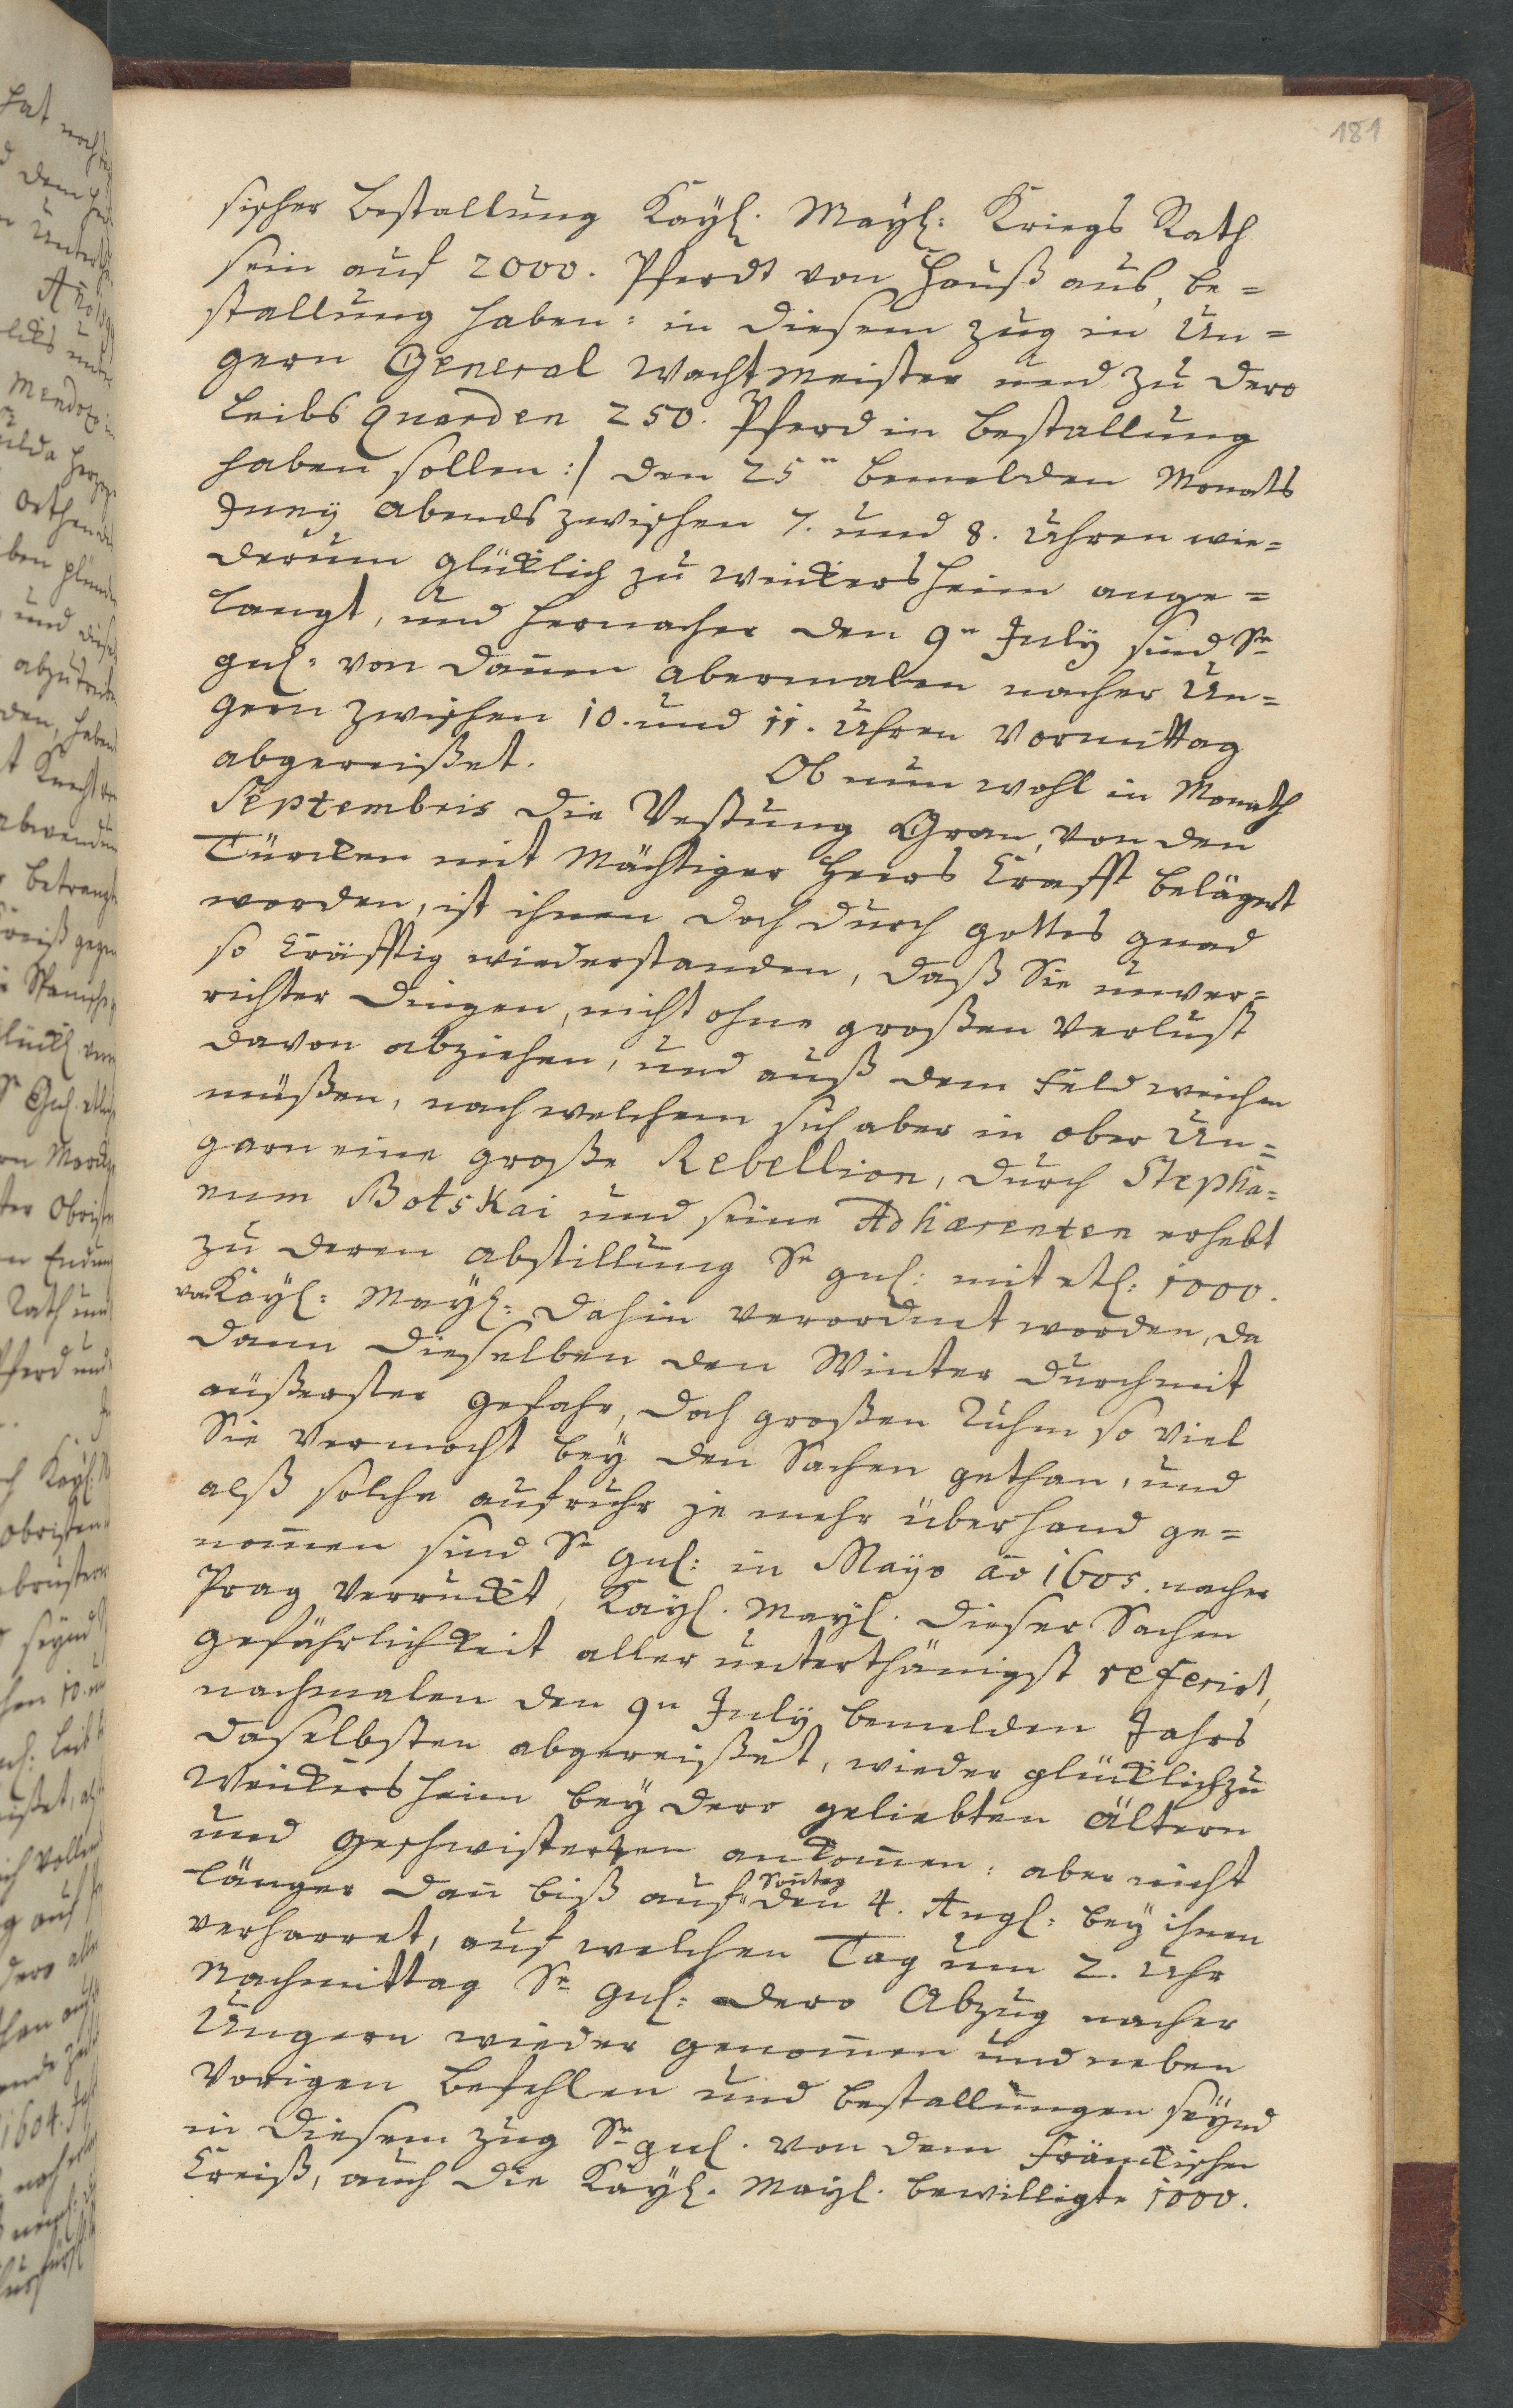 181
sischer Bestallung Kayß. Mayß: Kriegs Rath
sein auf 2000. Pferdt von Hauß aus, be=
stallung haben: in diesem zug in Un=
gern General Wachtmeister und zu dero
Leibs quarden 250. Pferd in bestallung
haben sollen :/ den 25n bemelden Monats
Juny abends zwischen 7. und 8. Uhren wie=
derum glücklich zu Weickersheim ange=
langt, und hernacher den 9n July sind Sr
gnl: von dan̄en abermalen nacher Un=
gern zwischen 10. und 11. Uhren Vormittag
abgereißet. Ob nun wohl in Monath
Septembris die Vestung Gran, von den
Türcken mit Mächtiger Heers Krafft belägert
worden, ist ihnen doch durch gottes gnad
so kräfftig wiederstanden, daß Sie unver=
richter dingen, nicht ohne großen Verlust
davon abziehen, und auß dem Feld weichen
müßen, nach welchem sich aber in ober Un=
garn eine große Rebellion, durch Stepha=
num Botskai und seine Adhærenten erhebt
zu deren abstillung Sr gnl: mit etl: 1000.
von Kayß: Mayß: dahin verordnet worden, da
dann dieselben den Winter durch mit
äußerster gefahr, doch großen Ruhm so viel
Sie vermocht bey den Sachen gethan, und
alß solche aufruhr je mehr überhand ge=
nom̄en sind Sr gnl: in Mayo aō 1605. nacher
Prag verruckt, Kayß. Mayß. dieser Sachen
gefährlichkeit aller unterthänigst referirt,
nachmalen den 9n July bemelden Jahrs
daselbsten abgereißet, wieder glücklich zu
Weickersheim bey dero geliebten ältern
und geschwisterten ankom̄en: aber nicht
länger dan̄ biß auf Son̄tag den 4. Augß: bey ihnen
verharret, auf welchen Tag um 2. Uhr
Nachmittag Sr gnl: dero Abzug nacher
Ungern wieder genom̄en und neben
Vorigen befehlen und bestallungen seynd
in diesem zug Sr gnl. von dem Fränckischen
Creiß, auch die Kayß. Mayß. bewilligte 1000.